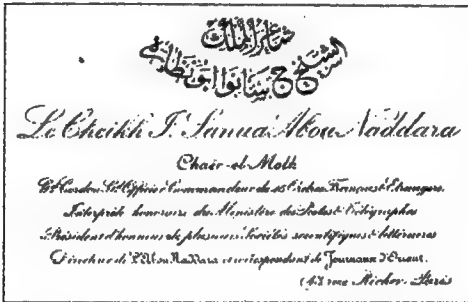 شاعر الملك
الشيخ ج سانوا ابو نظارة
Le Cheikh J. Sanua Abou Naddara
Chaër-el-Molk
Gd Cordon, Gd Officier, Commandeur de 16 Ordres Français & Etrangers
Interprète honoraire du Ministère des Postes & Télégraphes
Président d'honneur de plusieurs Sociétés scientifiques & littéraires
Directeur de L'Abou Naddara et correspondant de Journaux d'Orient.
43 rue Richer. Paris